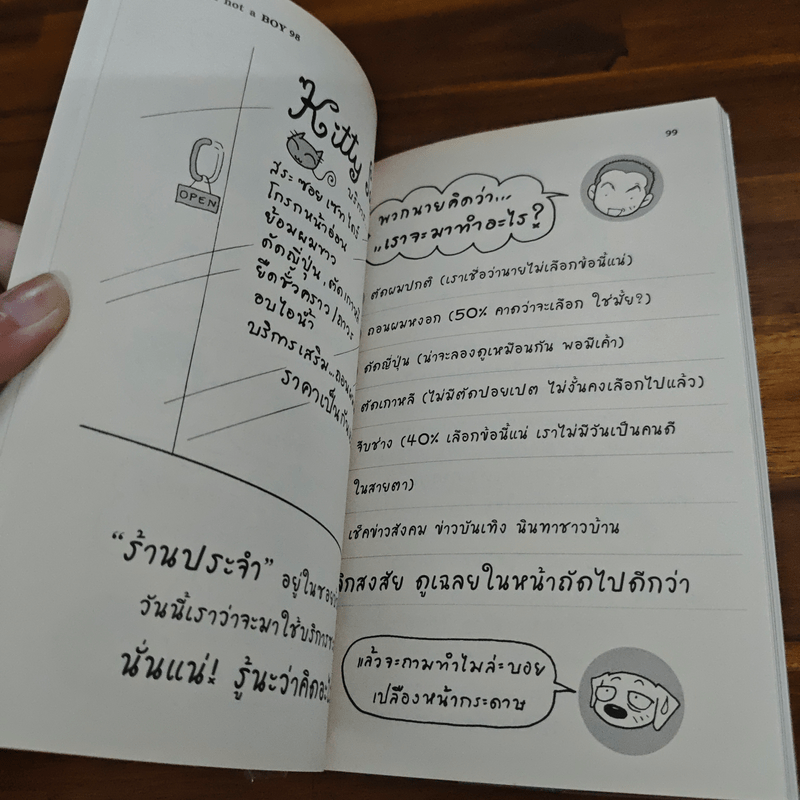 not a BOY 98
Kitty
OPEN
บริการ
สระ ซอย เซ็ท ไดร์
โกรกหน้าอ่อน
ย้อมผมขาว
ดัดญี่ปุ่น, ดัดเกาหลี
ยืดชั่วคราว/ถาวร
อบไอน้ำ
บริการเสริม...ถอน
ราคาเป็นกัน
"ร้านประจำ" อยู่ในซอย
วันนี้เราว่าจะมาใช้บริการ
นั่นแน่! รู้นะว่าคิดอะไร
99
พวกนายคิดว่า...
..เราจะมาทำอะไร?
ตัดผมปกติ (เราเชื่อว่านายไม่เลือกข้อนี้แน่)
ถอนผมหงอก (50% คาดว่าจะเลือก ใช่มั้ย?)
ดัดญี่ปุ่น (น่าจะลองดูเหมือนกัน พอมีเค้า)
ดัดเกาหลี (ไม่มีตัดปอยเปต ไม่งั้นคงเลือกไปแล้ว)
จีบช่าง (40% เลือกข้อนี้แน่ เราไม่มีวันเป็นคนดี
ในสายตา)
เช็คข่าวสังคม ข่าวบันเทิง นินทาชาวบ้าน
เลิกสงสัย ดูเฉลยในหน้าถัดไปดีกว่า
แล้วจะถามทำไมล่ะบอย
เปลืองหน้ากระดาษ